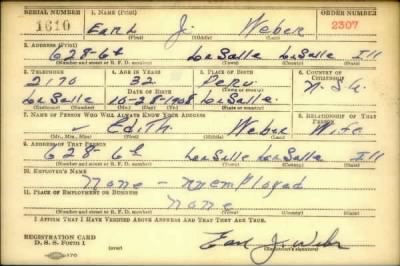 SERIAL NUMBER 1. NAME (Print) ORDER NUMBER
1610 Earl J. Weber 2307
(First) (Middle) (Last)
2. ADDRESS (Print)
628-6th LaSalle LaSalle Ill
(Number and street or R. F. D. number) (Town) (County) (State)
3. TELEPHONE 4. AGE IN YEARS 5. PLACE OF BIRTH 6. COUNTRY OF CITIZENSHIP
2170 32 Peru
LaSalle 10-28-1908 LaSalle U.S.A.
(Exchange) (Number) DATE OF BIRTH (Mo.) (Day) (Yr.) (Town or county) (State or country)
7. NAME OF PERSON WHO WILL ALWAYS KNOW YOUR ADDRESS 8. RELATIONSHIP OF THAT PERSON
Edith Weber Wife
(Mr., Mrs., Miss) (First) (Middle) (Last)
9. ADDRESS OF THAT PERSON
628-6th LaSalle LaSalle Ill
(Number and street or R. F. D. number) (Town) (County) (State)
10. EMPLOYER'S NAME
None - unemployed
11. PLACE OF EMPLOYMENT OR BUSINESS
None
(Number and street or R. F. D. number) (Town) (County) (State)
I AFFIRM THAT I HAVE VERIFIED ABOVE ANSWERS AND THAT THEY ARE TRUE.
REGISTRATION CARD
D. S. S. Form 1 Earl J. Weber
(Registrant's signature)